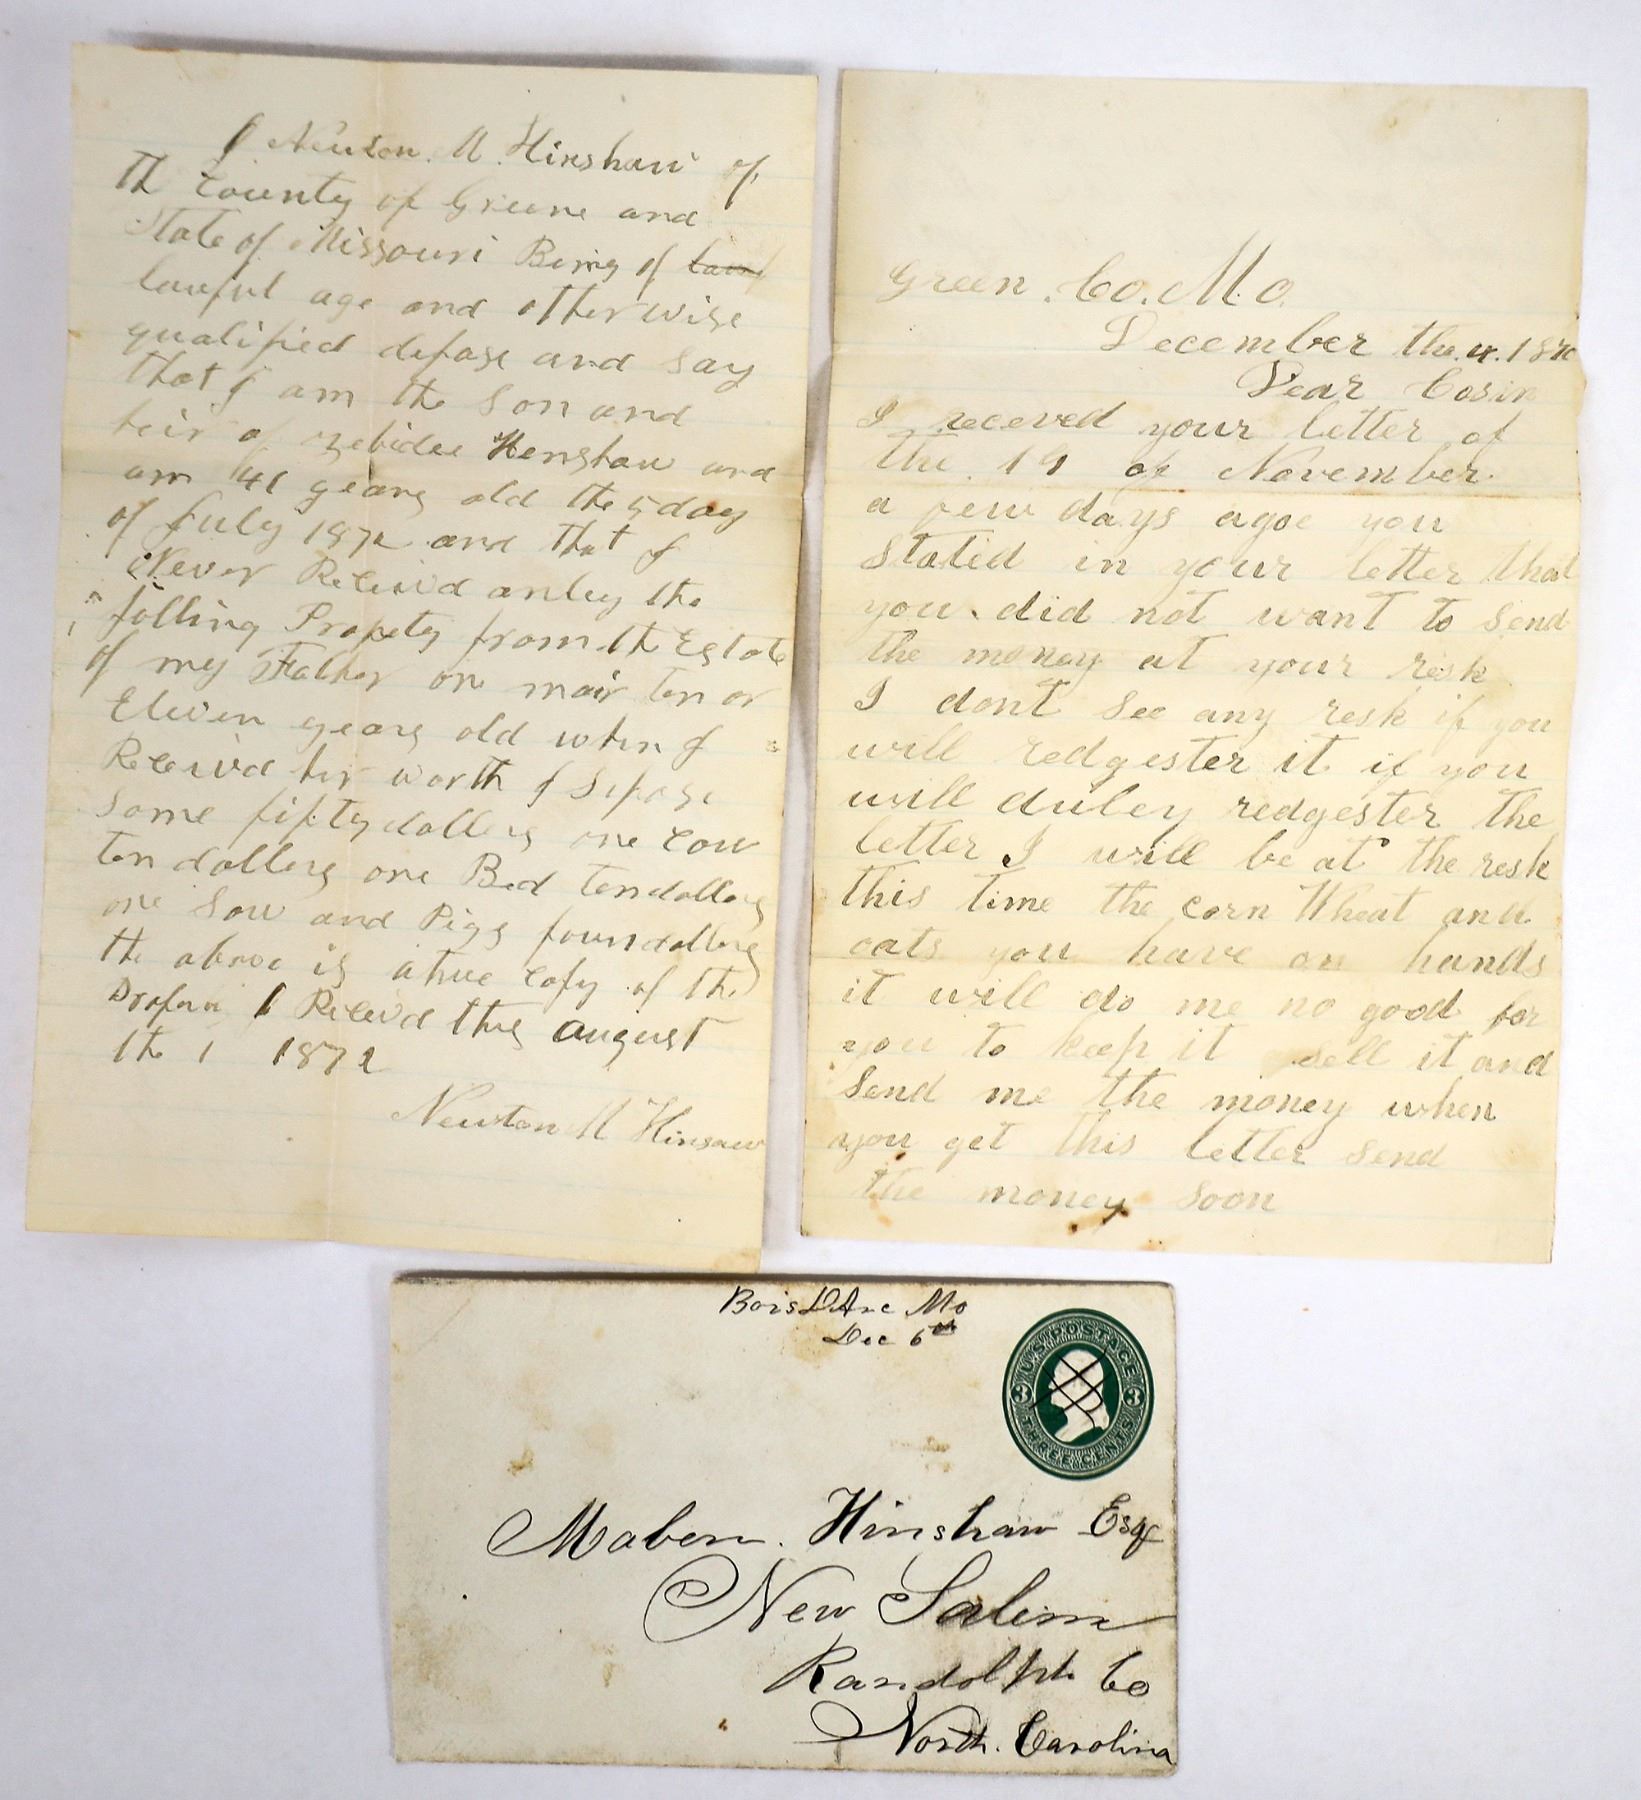 I Newton. M. Hinshaw of
th County of Greene and
State of Missouri Being of
lawful age and otherwise
qualified depose and say
that I am the Son and
heir of Henshaw and
am 41 years old the 5 day
of July 1872 and that I
Never Receivd anley the
folling Propety from th Estate
of my Father one mair ten or
Eleven years old when I
Receivd her worth I Sepose
Some fifty dollers one cow
ten dollers one Bed ten dollers
one Sow and Pigs dollers
the above is a true Copy of the
I Receivd this august
the 1 1872
Newton M Hinsaw
Green. Co. Mo.
December the. 4. 187
Dear Cosin
I receved your letter of
the 19 of November.
a few days agoe you
stated in your letter that
you. did not want to send
the money at your resk
I dont see any resk if you
will redgester it if you
will duley redgester the
letter I will be at the resk
this time the corn Wheat and
oats you have on hands
it will do me no good for
you to keep it sell it and
send me the money when
you get this letter send
the money soon
Bois DArc Mo
Dec 6th
U.S. POSTAGE
3 3
THREE CENTS
Maben. Hinshaw Esq
New Salem
Randolph Co
North. Carolina